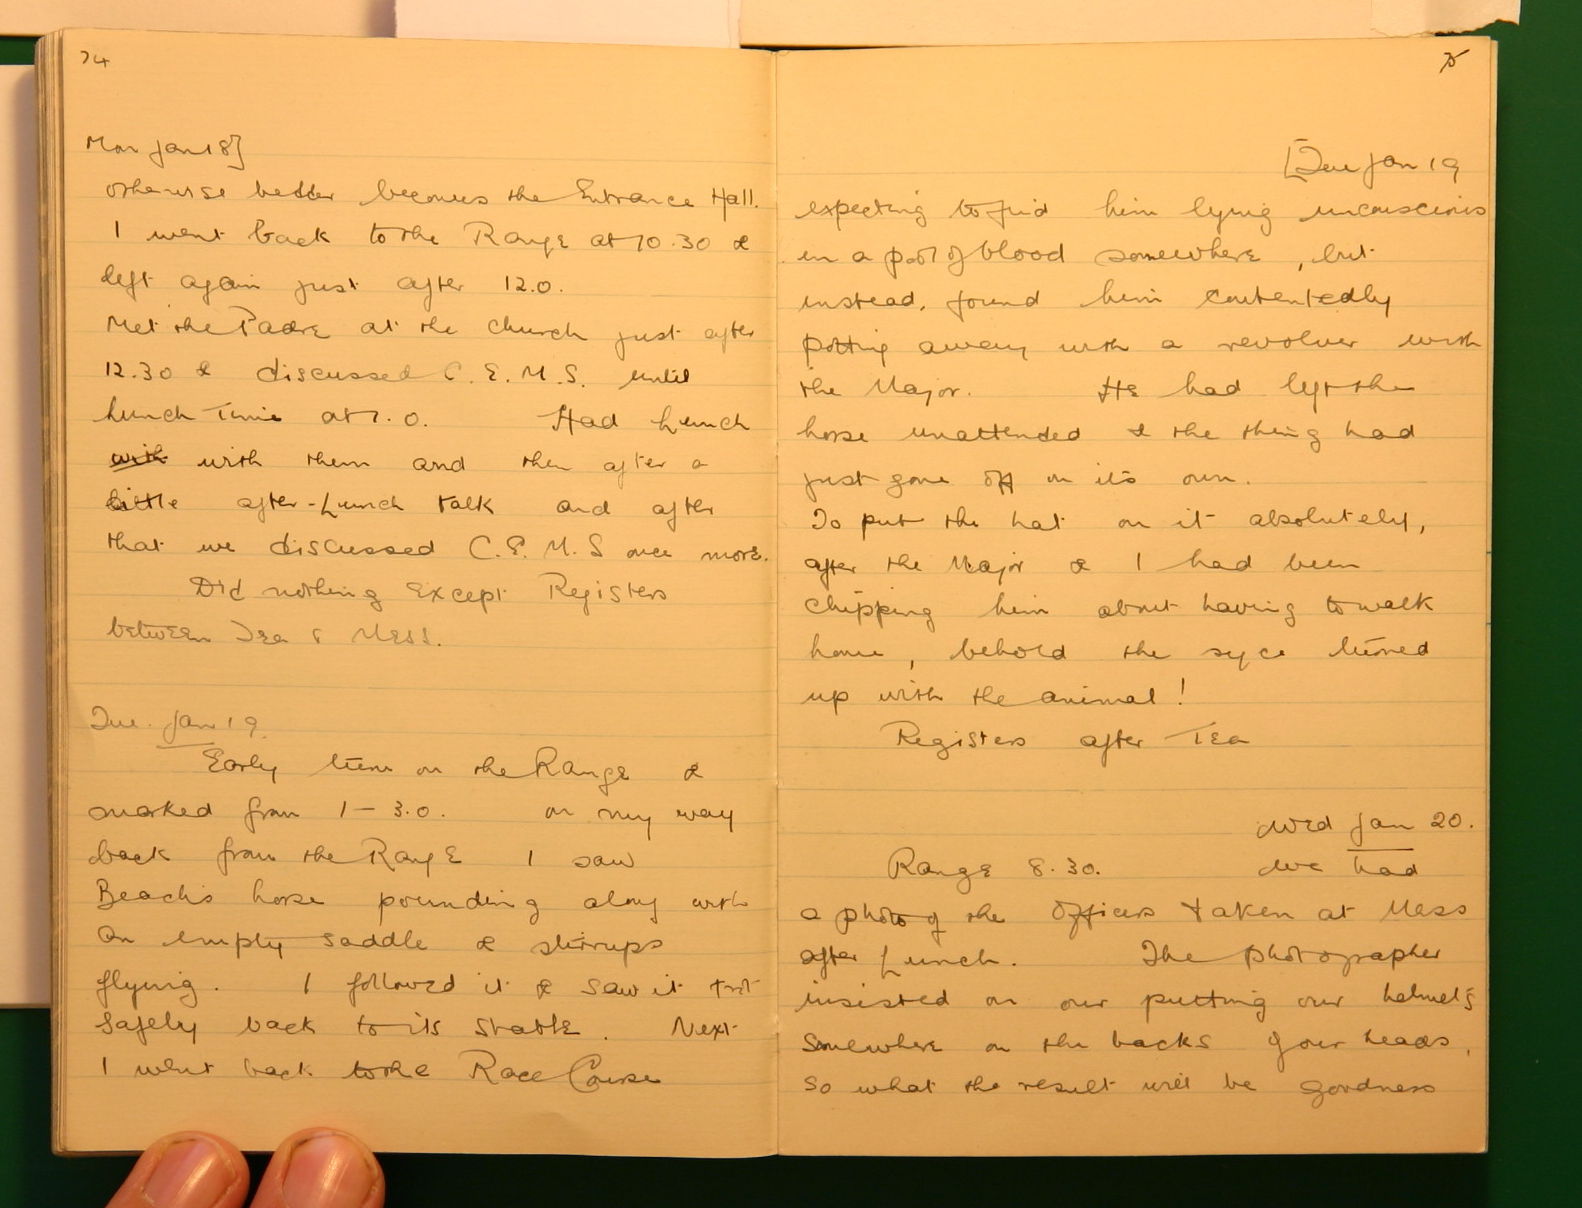 74
Mon Jan 18]
otherwise better becomes the Entrance Hall.
I went back to the Range at 10.30 &
left again just after 12.0.
Met the Padre at the church just after
12.30 & discussed C.E.M.S. until
Lunch Time at 1.0. Had Lunch
with with them and then after a
little after-Lunch talk and after
that we discussed C.E.M.S once more.
Did nothing Except Registers
between Tea & Mess.
Tue. Jan 19.
Early turn on the Range &
marked from 1 - 3.0. On my way
back from the Range I saw
Beach's horse pounding along with
an empty saddle & stirrups
flying. I followed it & saw it trot
safely back to its stable. Next
I went back to the Race Course
75
[Tue Jan 19
expecting to find him lying unconscious
in a pool of blood somewhere, but
instead, found him contentedly
potting away with a revolver with
the Major. He had left the
horse unattended & the thing had
just gone off on its own.
To put the hat on it absolutely,
after the Major & I had been
chipping him about having to walk
home, behold the syce turned
up with the animal!
Registers after Tea
Wed Jan 20.
Range 8.30. We had
a photo of the Officers taken at Mess
after Lunch. The photographer
insisted on our putting our helmets
somewhere on the backs of our heads,
so what the result will be goodness